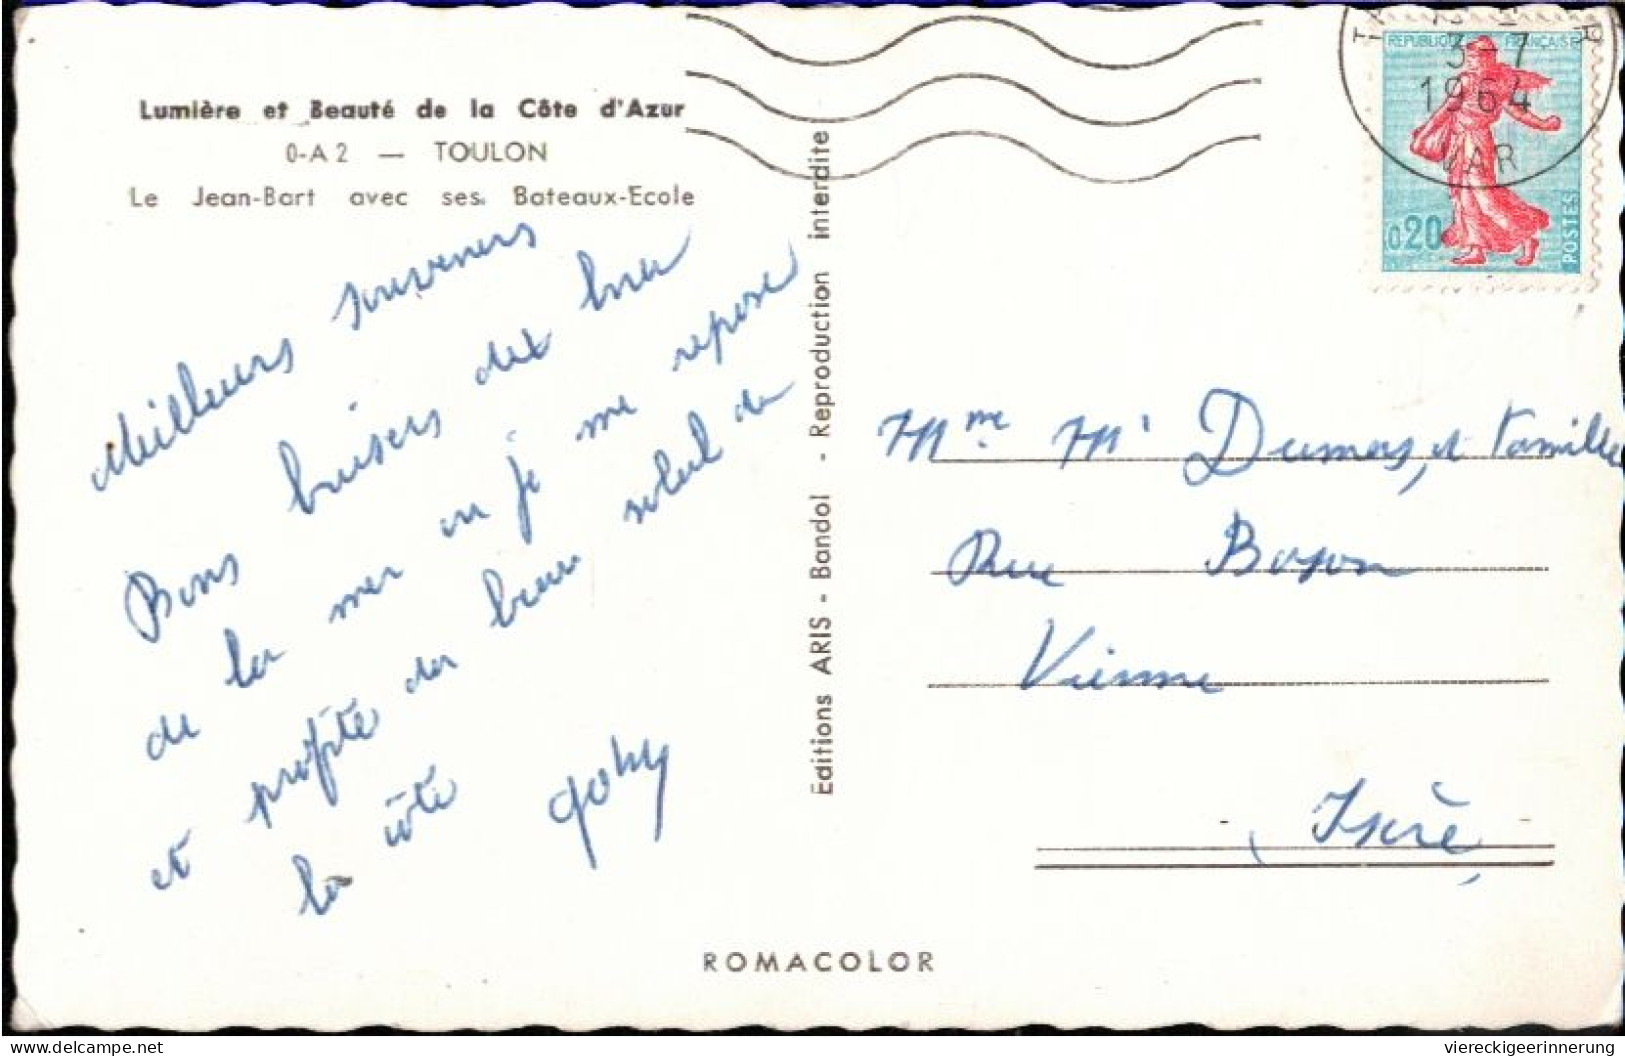 Lumière et Beauté de la Côte d'Azur
0-A 2 — TOULON
Le Jean-Bart avec ses Bateaux-Ecole
Meilleurs souvenirs
Bons baisers des
de la mer ou je me repose
et profite du beau soleil de
la côte
Editions ARIS - Bandol - Reproduction interdite
ROMACOLOR
REPUBLIQUE FRANÇAISE
0,20
POSTES
3-7
1964
VAR
Mme Mr Dumas, et famille
Rue Boson
Vienne
Isère
viereckigeerinnerung